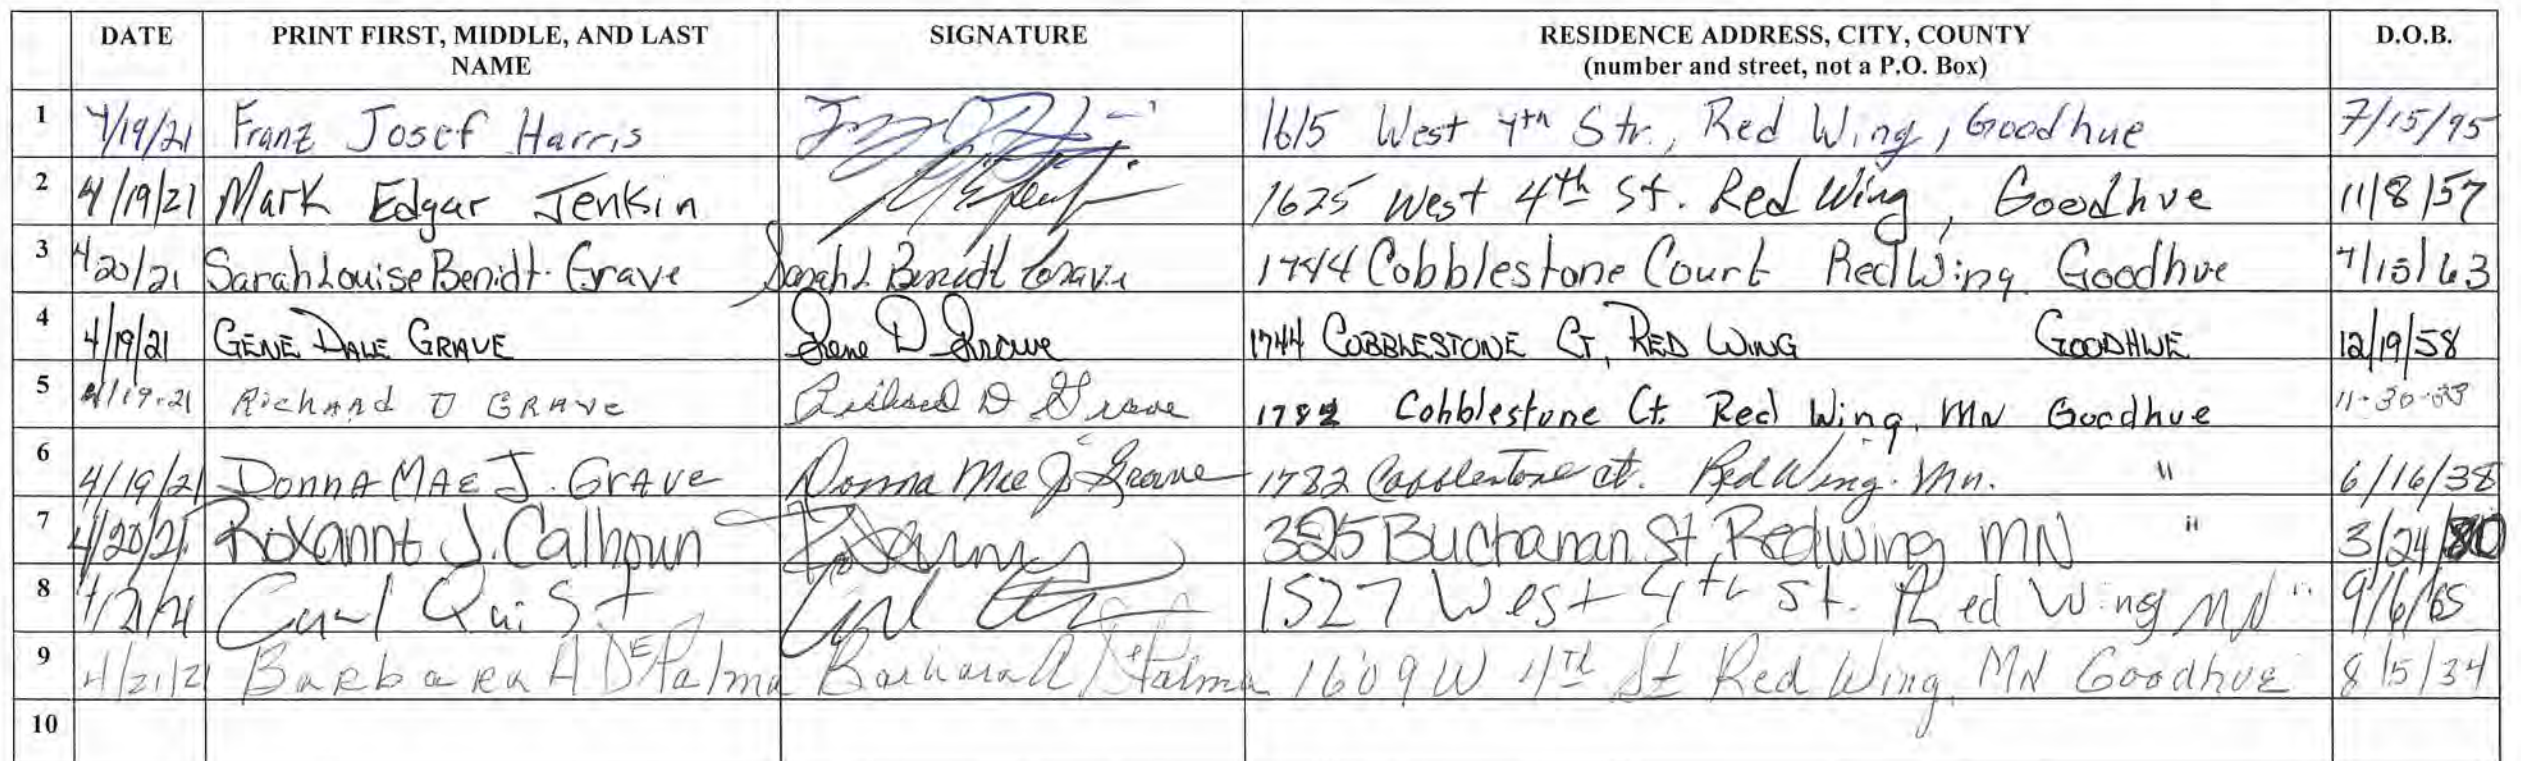 DATE PRINT FIRST, MIDDLE, AND LAST NAME SIGNATURE RESIDENCE ADDRESS, CITY, COUNTY (number and street, not a P.O. Box) D.O.B.
1 4/19/21 Franz Josef Harris 1615 West 4th Str., Red Wing, Goodhue 7/15/95
2 4/19/21 Mark Edgar Jenkin 1625 West 4th St. Red Wing, Goodhue 11/8/57
3 4/20/21 Sarah Louise Benidt-Grave Sarah L Benidt Grave 1744 Cobblestone Court Red Wing Goodhue 7/15/63
4 4/19/21 GENE DALE GRAVE Gene D Grave 1744 COBBLESTONE CT, RED WING GOODHUE 12/19/58
5 4/19-21 Richard D GRAVE Richard D Grave 1782 Cobblestone Ct. Red Wing, MN Goodhue 11-30-33
6 4/19/21 Donna MAE J. Grave Donna Mae J Grave 1782 Cobblestone ct. Red Wing. Mn. " 6/16/38
7 4/20/21 Roxanne J. Calhoun 325 Buchanan St, Redwing MN " 3/24/80
8 4/21/21 Carl Quist Carl 1527 West 4th St. Red Wing MN " 9/6/65
9 4/21/21 Barbara A DePalma Barbara A DePalma 1609 W 4th St Red Wing, MN Goodhue 8/5/34
10